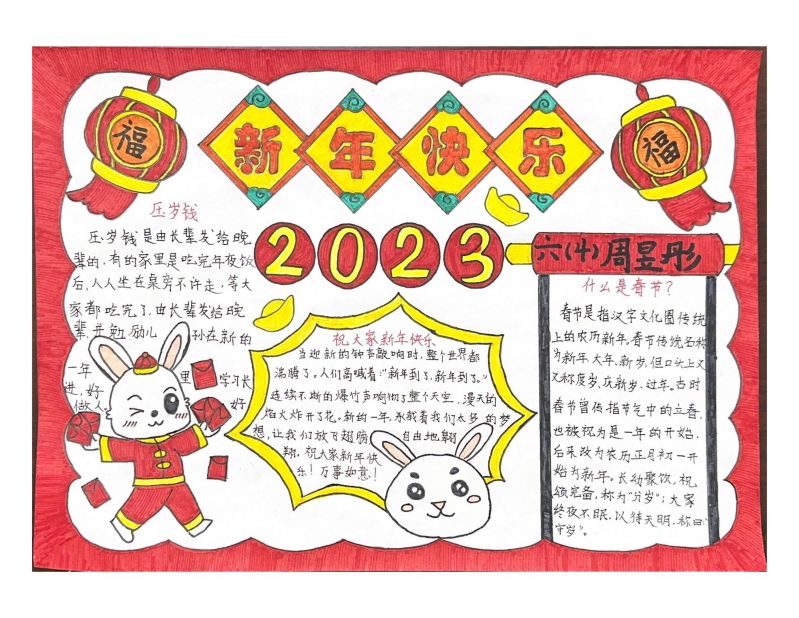 福
新年快乐
福
2023
六(4)周昱彤
压岁钱
压岁钱是由长辈发给晚
辈的,有的家里是吃完年夜饭
后,人人坐在桌旁不许走,等大
家都吃完了,由长辈发给晚
辈,并勉励儿孙在新的
一年里学习长
进,好
做人。好
祝大家新年快乐
当迎新的钟声敲响时,整个世界都
沸腾了。人们高喊着:“新年到了,新年到了。”
连续不断的爆竹声响彻了整个天空,漫天的
焰火炸开了花。新的一年,承载着我们太多的梦
想,让我们放飞翅膀自由地翱
翔,祝大家新年快
乐!万事如意!
什么是春节?
春节是指汉字文化圈传统
上的农历新年,春节传统名称
为新年、大年、新岁,但口头上又
又称度岁、庆新岁、过年。古时
春节曾传指节气中的立春,
也被视为是一年的开始,
后来改为农历正月初一开
始为新年。长幼聚饮,祝
颂完备,称为“分岁”;大家
终夜不眠,以待天明,称曰“
守岁”。